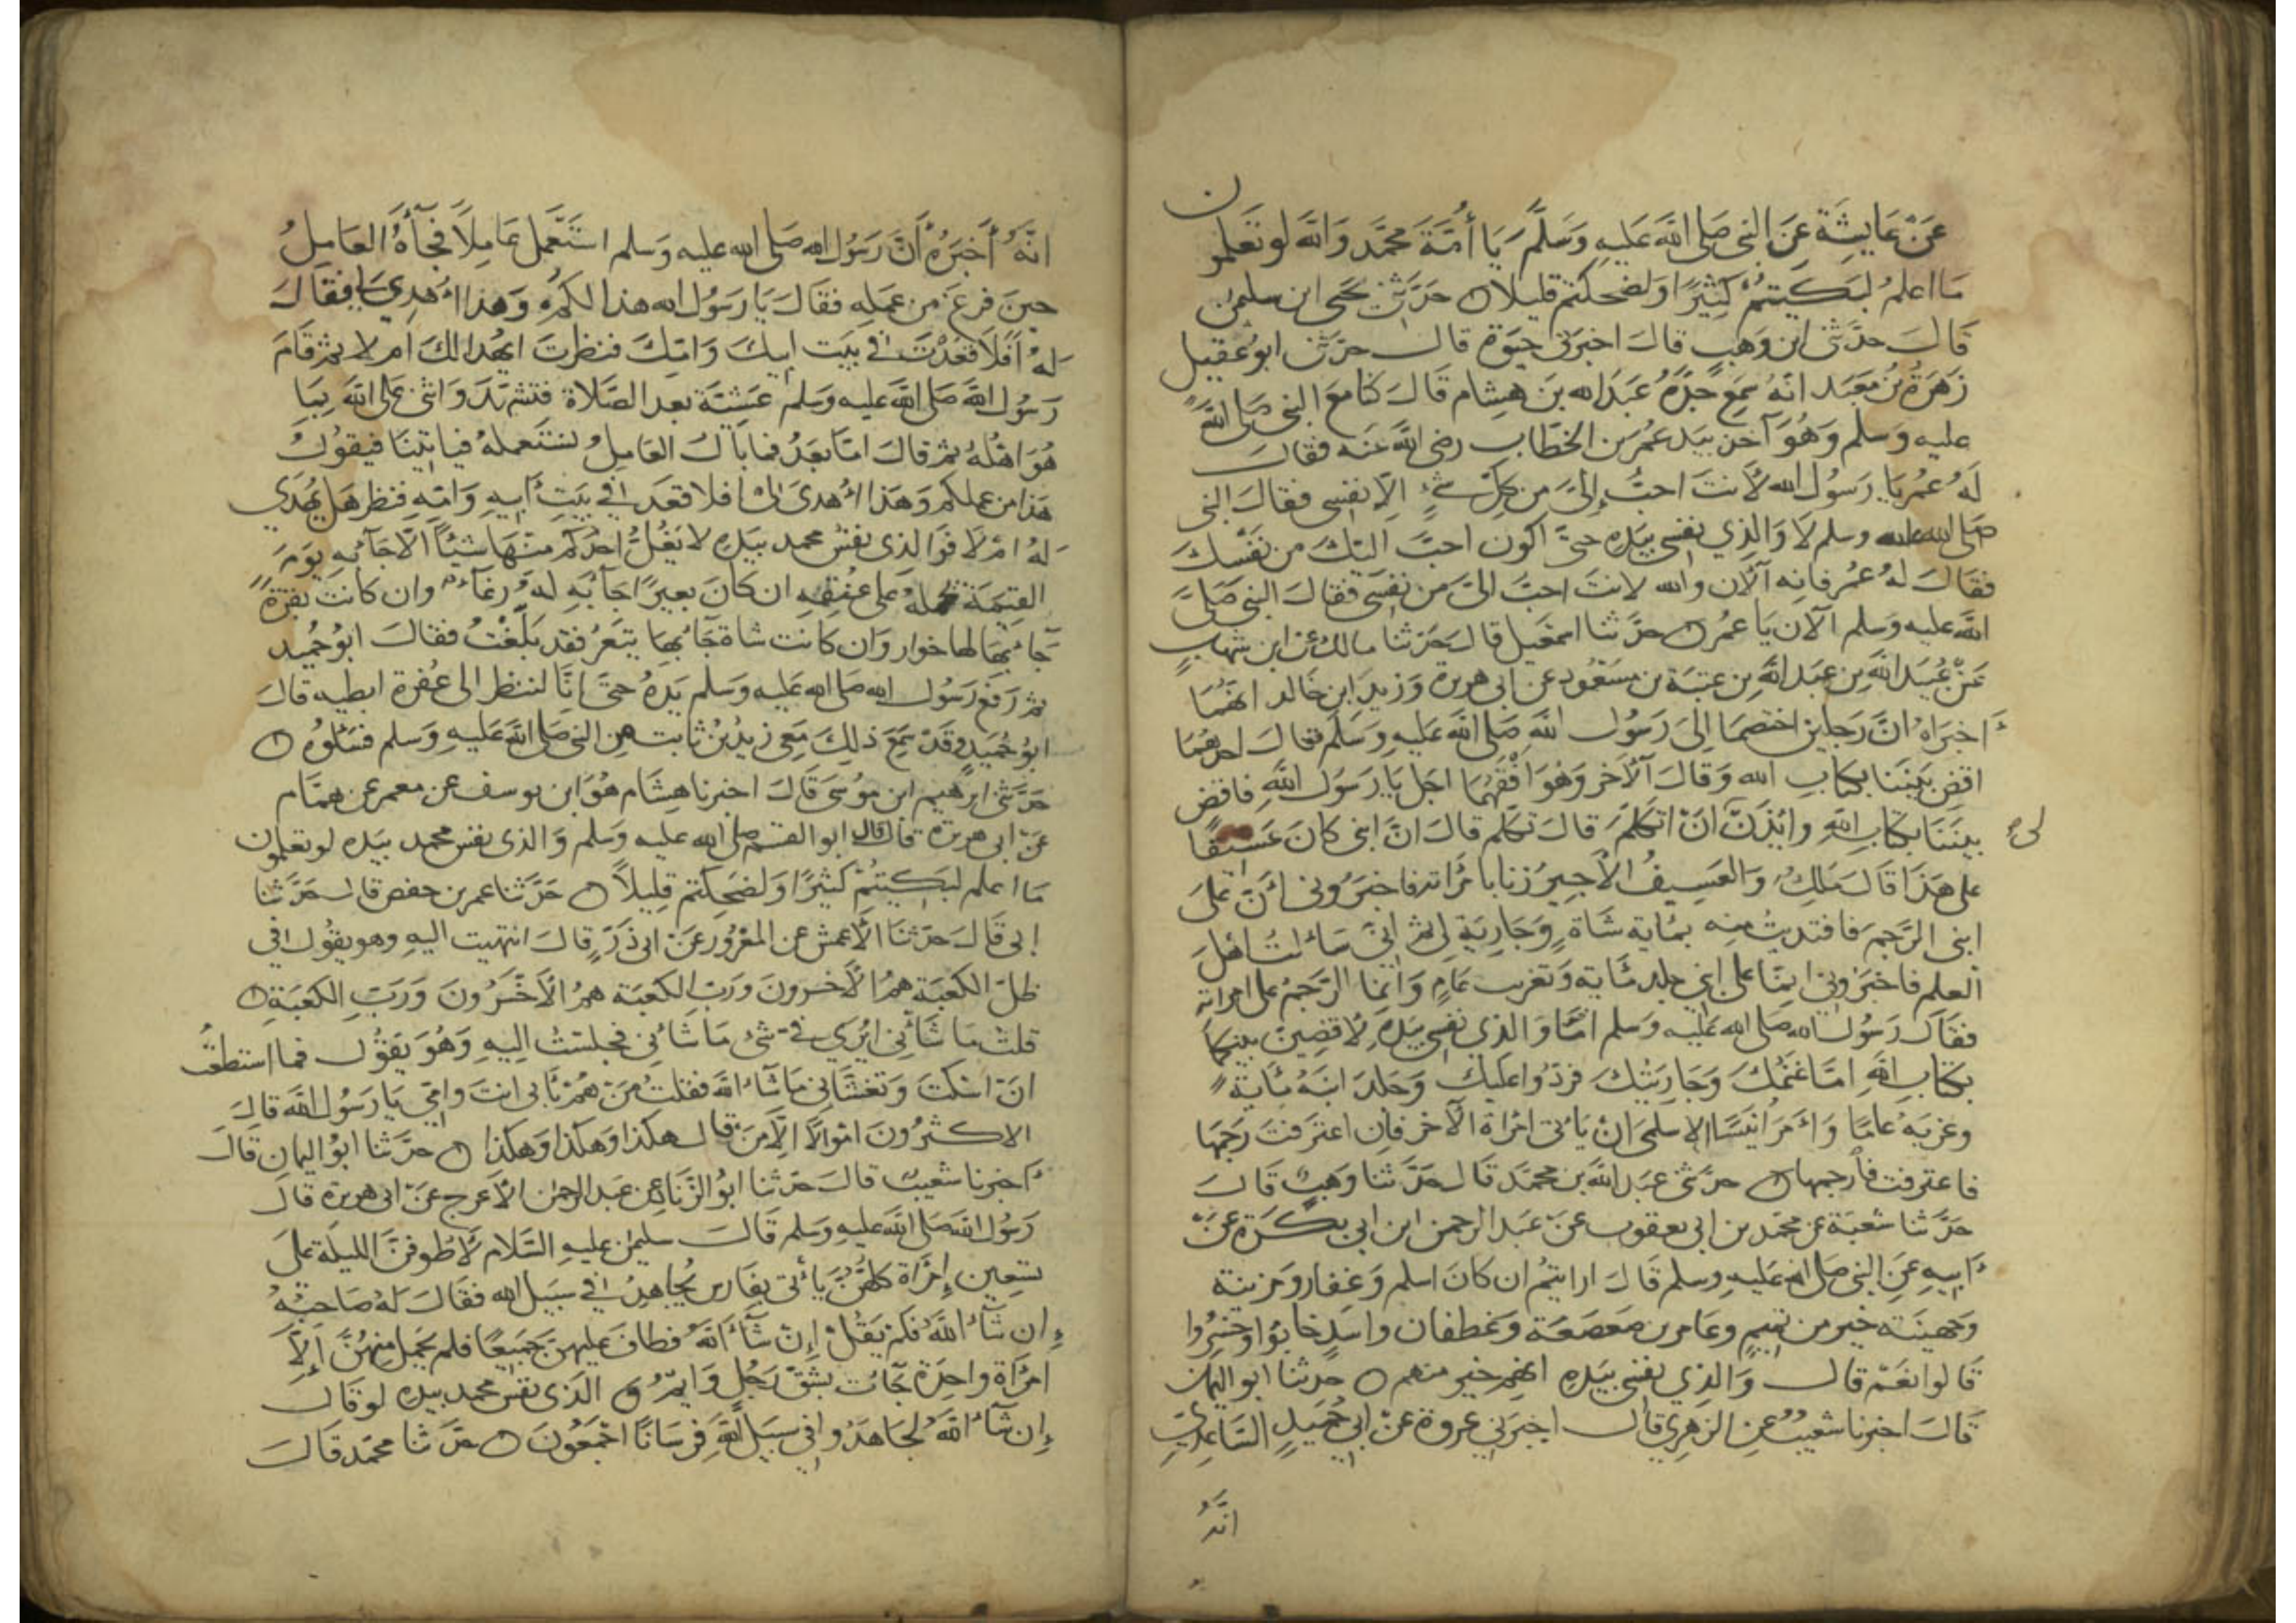 عَنْ عَايِشَةَ عَنِ النبى صَلى اللَّه عَلَيهِ وَسَلَّمَ يَا أُمَّةَ مُحَمَّد وَاللَّه لو تَعلمون
مَا اعلمُ لبَكَيتُمْ كَثِيْرًا وَلضحكتم قليلا ۞ حَدَّثنى يحيى ابن سليمن
قَالَ حدَّثنى ابن وَهبٍ قالَ اخبرَنى حيوَة قالَ حدّثنى ابو عُقيلٍ
زُهرَةُ بنُ مَعْبَد انّهُ سَمِعَ جَدَّهُ عَبْدَ الله بنَ هِشام قَالَ كنا مَعَ النبى صَلى اللَّه
عليه وَسَلم وَهُوَ آخذ بيَد عُمر بن الخطّاب رضى اللَّه عَنه فقالَ
لَهُ عُمرُ يَا رَسُول الله لأنتَ احبُّ إلىَّ مِن كلّ شىءٍ اِلّا نفسِى فقالَ النبى
صَلى الله عليه وسلم لا وَالَّذِي نفسِى بيَدِهِ حتىَّ اكون احبَّ اليْكَ من نفْسكَ
فقالَ لهُ عُمرُ فانه الآن والله لانتَ احبُّ الىَّ مِن نفسِى فقالَ النبى صَلَّى
اللَّه عليه وسلم الآن يَا عمرُ ۞ حدَّثنا اسمعيل قالَ حَدّثنا مالك عن ابن شهابٍ
عَنْ عُبيد اللَّهِ بن عَبد اللَّهِ بن عتبَة بن مسعُود عن ابى هريرة وَزيد ابن خالد انهُمَا
اَخبَرَاهُ انَّ رَجلين اختصمَا اِلى رَسُول اللَّه صَلى اللَّه عَليهِ وَسَلَّم فقالَ احدهُمَا
اقضِ بَيْننا بكِتابِ الله وَقالَ الآخر وَهوَ افقهُمَا اجل يَا رَسُولَ اللَّهِ فاقض
بينَنَا بكتابِ اللَّهِ وايْذَنْ لى انْ اتكلمَ قالَ تكلم قالَ انَّ ابنى كانَ عَسِيفًا
على هَذَا قَالَ مَلِكٌ وَالعَسِيفُ الأَجِيرُ زنا بامْرأته فاخبَرُونى أنَّ عَلى
ابنى الرَّجمَ فافتديتُ منه بمَاية شاةٍ وَجَارِيَةٍ لى ثمَّ انىّ سَالتُ اَهْلَ
العلم فاخبرُونى انمَا على ابنى جلد مَاية وَتغريب عَامٍ وَانما الرَّجمُ على امراته
فقالَ رَسُولُ الله صَلى الله عليه وَسَلم امَا وَالذى نفسِى بيَدِهِ لاقضِينَّ بينكما
بكتابِ اللَّهِ امّا غنَمُكَ وَجَاريتكَ فرَدٌّ عليكَ وَجَلدَ ابنهُ مَايةً
وغرّبَهُ عَامًا وَأمرَ انَيْسًا الاسلمىَّ انْ يَأتىَ امْرَاةَ الآخر فان اعترفتْ رَجمَهَا
فاعترفت فأرجمها ۞ حدّثنى عَبْدُ اللَّه بن محمَّد قالَ حَدّثنا وَهبٌ قَالَ
حَدّثنا شعبة عن محمّد بن ابى يعقوب عَنْ عَبدِ الرحمن ابن ابى بكرَة عَنْ
اَبيهِ عَنِ النبى صَلى الله عَليهِ وسلم قالَ ارايتمُ ان كانَ اسلم وَغِفار ومزينة
وَجُهينَة خير من تميمٍ وعَامر بن صَعصَعَة وَغطفان واسَدٍ خابُوا وخسِرُوا
قَالوا نَعَمْ قالَ وَالذِي نفسِى بيَدِهِ انهُم خير منهم ۞ حَدثنا ابو اليمان
قَالَ اخبرنا شعيبٌ عنِ الزهرِي قالَ اخبرَني عروة عَنْ ابى حُميدٍ السَاعدِىّ
انَّهُ
انَّهُ أَخبَرَهُ أنَّ رَسُولَ الله صَلى الله عليه وَسَلم استَعْمل عَامِلاً فجَآءَهُ العَامِلُ
حينَ فرغَ من عَمَلِهِ فقالَ يَا رَسُولَ الله هذا لكُمْ وَهذا اُهدِيَ لِى فقالَ
لهُ اَفَلا قَعَدْتَ فى بيَت ابيكَ وَامّكَ فنظرتَ ايُهْدَا لكَ ام لا ثمَّ قَامَ
رَسُولُ اللَّه صَلى اللَّه عليه وَسَلم عَشِيَّة بعد الصَّلاة فتشهَّدَ وَاثنى عَلى اللَّه بمَا
هُوَ اهْلُهُ ثمَّ قالَ امَّا بَعْدُ فما بَالُ العَامِلُ نستَعملهُ فياتينَا فيقوُلُ
هَذا من عملِكم وَهَذا اُهدىَ لى افلا قعَدَ فى بَيتِ أبيهِ وَامّهِ فنظر هَل يُهْدَى
لهُ امْ لاَ فوَالذِى نفسُ محمد بيَدِهِ لا يَغُلُّ احَدكُم منهَا شيْئًا الّا جَآءَ بهِ يَوْمَ
القيمَة يحملهُ على عُنقِهِ ان كانَ بعِيرًا جَآءَ بهِ لهُ رغَآءٌ وان كانَتْ بقرَةً
جَآءَ بهَا لها خوار وَان كانت شاة جَآءَ بهَا يتعَرُ فقد بَلّغتُ فقالَ ابوُ حُميد
ثمَّ رَفعَ رَسُولُ الله صَلى الله عليه وَسَلم يَدَهُ حتىَّ اِنّا لننظر الى عُفرة ابطيه قالَ
ابوُ حُمَيدٍ وقَدْ سَمِعَ ذلِكَ مَعِى زيدُ بنُ ثابت مِن النبى صَلى اللَّه عَليهِ وَسَلم فسَلوُه ۞
حَدَّثنى ابرهيم ابن مُوسَى قَالَ اخبرنا هِشَام هُوَ ابن يوسف عن معمرٍ عن همَّام
عَنْ ابى هريرة قالَ قال ابو القسم صَلى الله عليه وسَلم وَالذى نفسُ محمد بيَده لو تعلمون
مَا اعلم لبكيتُمْ كثيْرًا وَلضحِكتم قلِيلاً ۞ حَدَّثنا عمر بن حفص قالَ حَدَّثنا
اِبى قَالَ حدّثنَا الأعمش عن المعْرُور عَنْ ابى ذَرٍّ قالَ انتهيت اليهِ وهو يقوُل فى
ظلّ الكعبَة همُ الأخسرونَ وَرَبّ الكَعبَة همُ الأَخْسَرُونَ وَرَبِّ الكَعْبَةِ ۞
قلتُ مَا شَأنِى ايُرَى فىَّ شىْءٌ مَا شَأنى فجلسْتُ اِليهِ وَهُوَ يَقوُل فما استطعْتُ
انَ اسْكتَ وَتغشّانى مَا شاءَ اللَّه فقلتُ مَنْ هُمْ بأبى انتَ وامّى يَا رَسُول اللَّه قالَ
الاكثرُونَ امْوَالًا اِلّا مَنْ قالَ هكذا وَهكذا وَهكذا ۞ حدّثنا ابوُ اليمانِ قَالَ
اَخبرنا شعَيبٌ قالَ حَدّثنا ابوُ الزّناد عن عبد الرحمن الأعرج عَنْ ابى هريرة قالَ
رَسُول اللَّه صَلى اللَّه عليهِ وسَلم قَالَ سليمن عليهِ السَّلام لَأطُوفنَّ الليلَة عَلى
تسعين اِمْرَاة كلهُنَّ يَأتى بفَارس يُجاهدُ فى سَبيل الله فقالَ لهُ صَاحبُهُ
اِن شَآءَ اللَّهُ فَلم يَقُلْ اِنْ شآءَ اللَّهُ فطافَ عَليهنَّ جَميعًا فلم يحمِل مِنْهُنَّ اِلَّا
امْرَاة وَاحِدَة جَآءتْ بشقّ رَجُلٍ وَايمُ الّذى نفسُ محمد بيده لو قالَ
اِن شآءَ اللَّهُ لجَاهَدُوا فى سَبيل اللَّهِ فرْسَانًا اجْمَعُونَ ۞ حدّثنا محمّد قَالَ